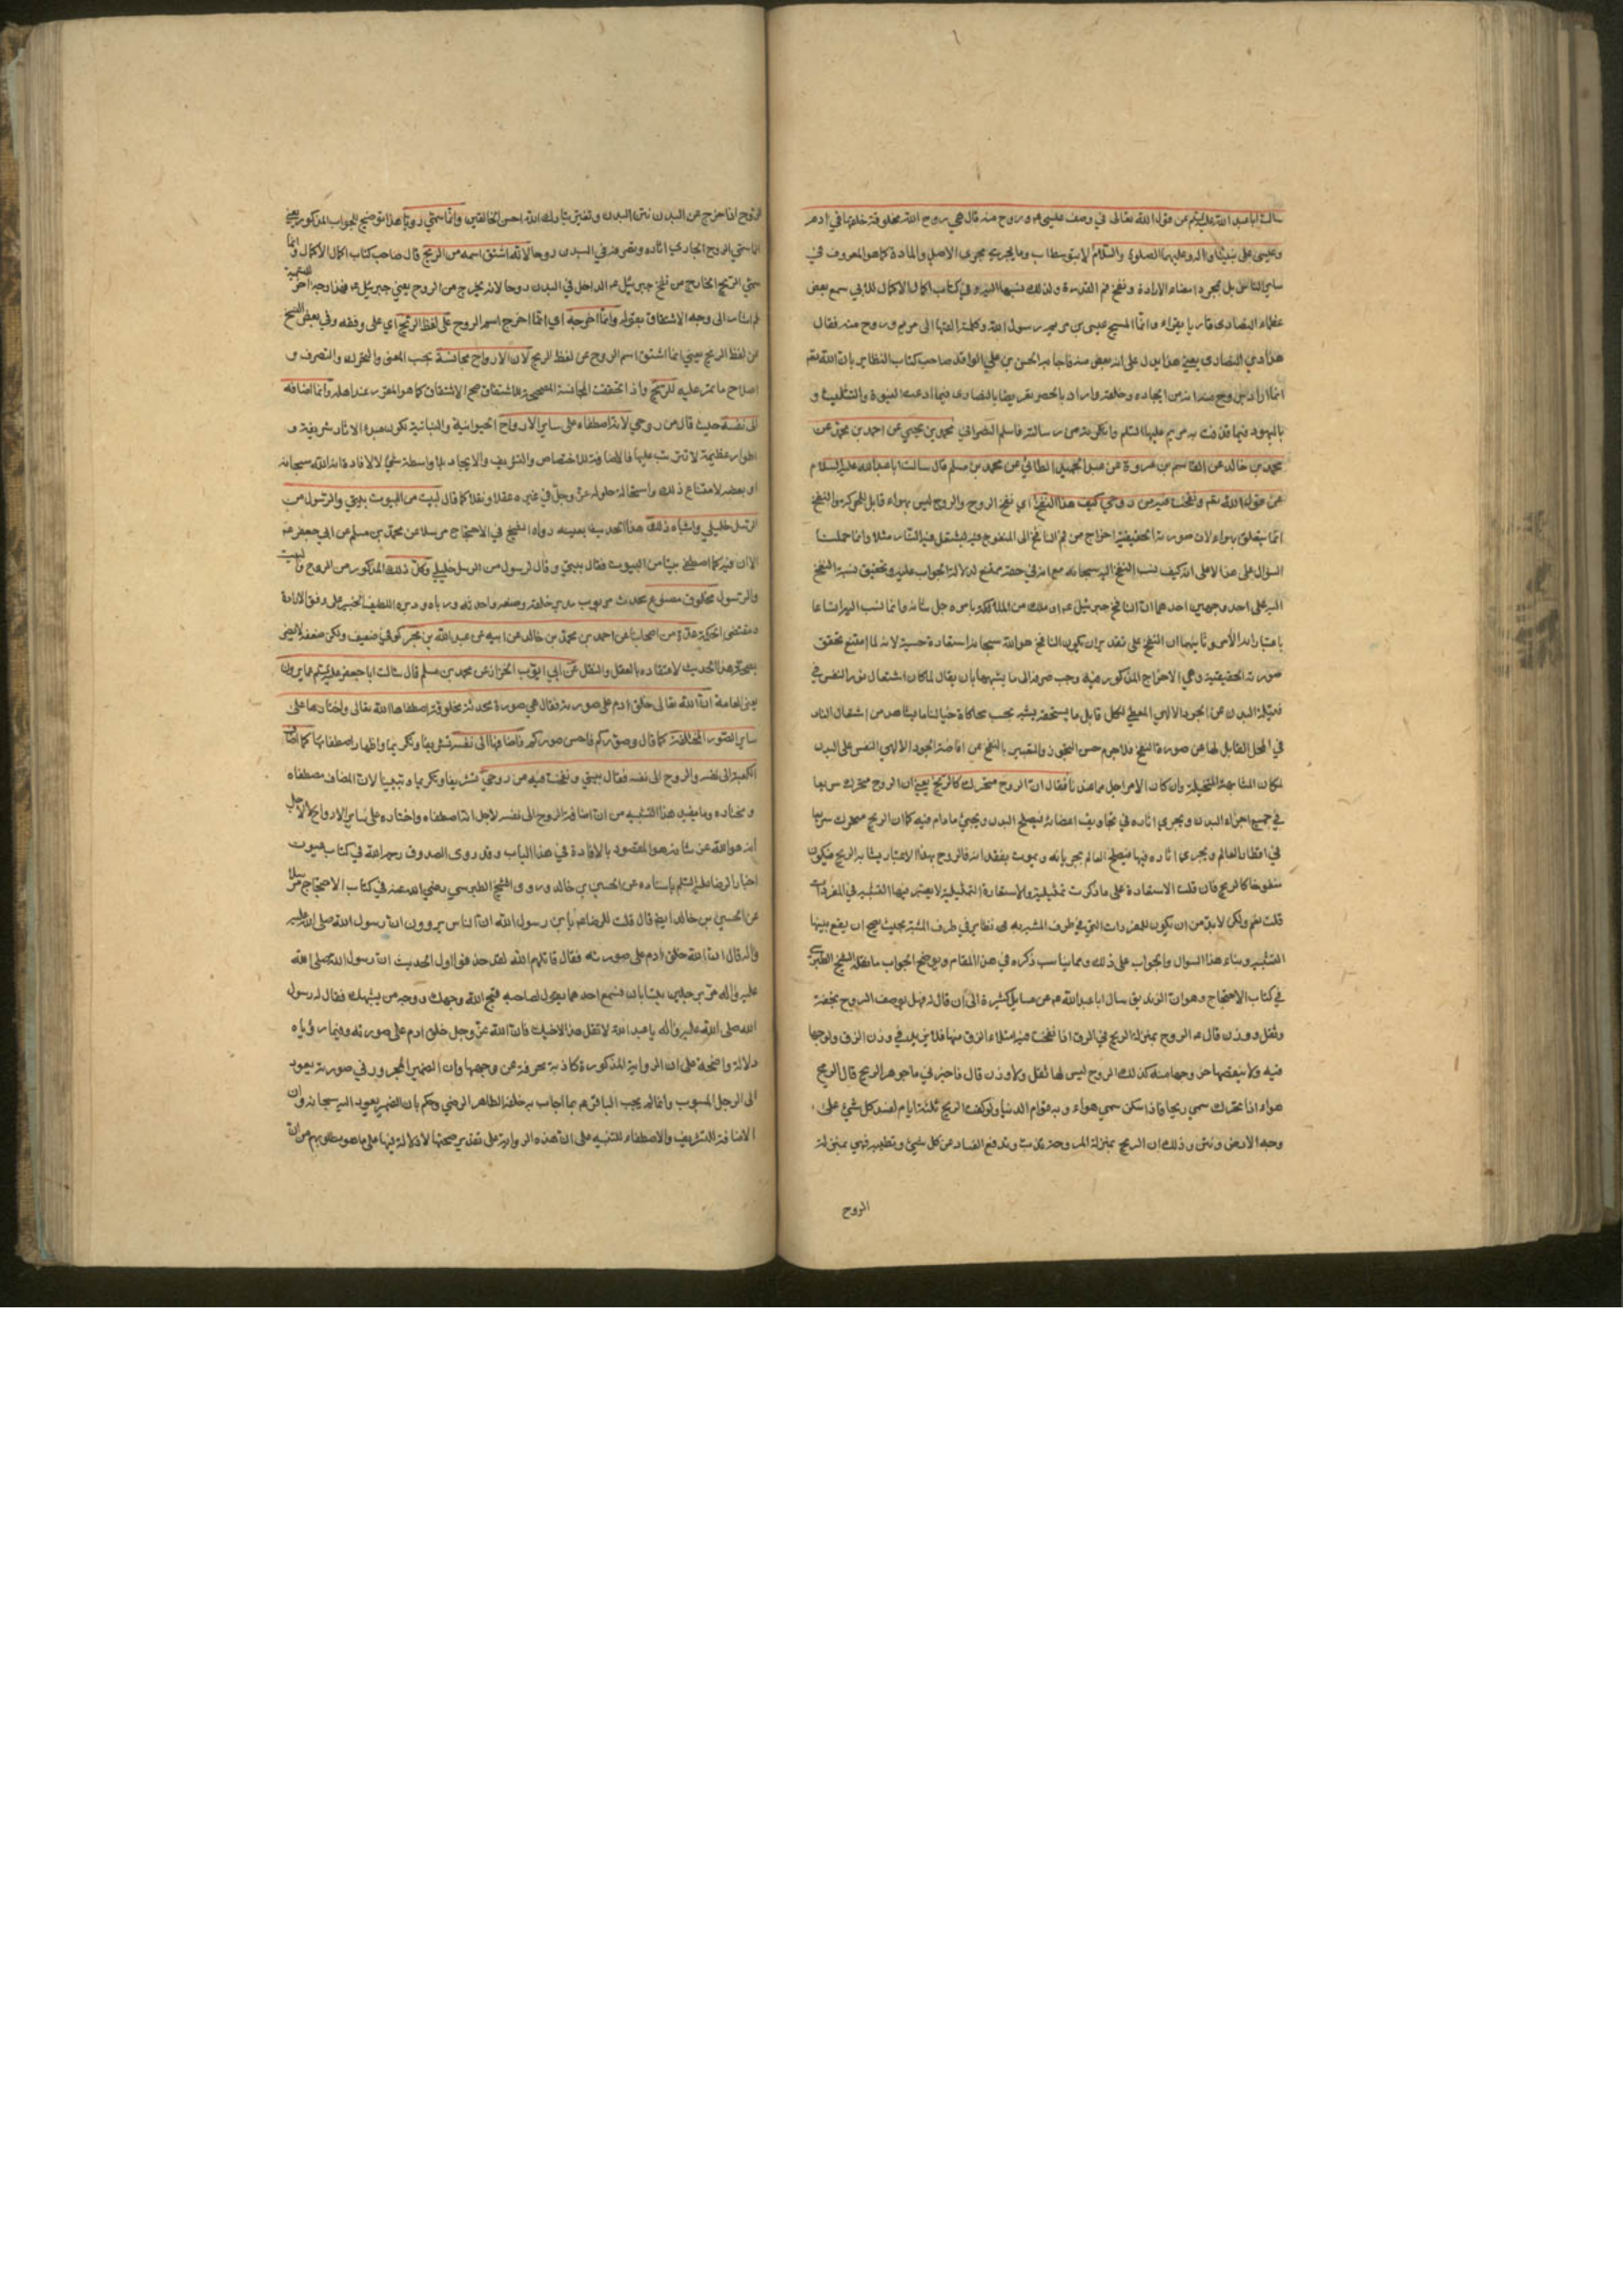 سالت ابا عبد الله عليه السلم عن قول الله تعالى في وصف عيسى ع وروح منه قال هي روح الله مخلوقة خلقها في ادم
وعيسى على نبينا واله وعليهما الصلوة والسلام لا بتوسط اب وما يجري مجرى الاصل والمادة كما هو المعروف في
ساير الناس بل بمجرد امضاء الارادة ونفخ القدرة ولذلك نسبها اليه وفي كتاب اكمال الاكمال للابي سمع بعض
عظماء النصارى قاريا يقراء وانما المسيح عيسى بن مريم رسول الله وكلمته القيها الى مريم وروح منه فقال
هذا دين النصارى يعني هذا يدل على انه بعض منه فاجابه الحسن بن علي الواقد صاحب كتاب النظاير بان الله تعم
انما اراد بروح منه انه من ايجاده وخلقه واراد بالحصر تعريضا بالنصارى فيما ادعت البنوة والتثليث و
باليهود فيما قذفت به مريم عليها السلم وانكرته من رسالته فاسلم النصراني محمد بن يحيى عن احمد بن محمد عن
محمد بن خالد عن القاسم بن عروة عن عبد الحميد الطائي عن محمد بن مسلم قال سالت ابا عبد الله عليه السلام
عن قول الله تعم ونفخت فيه من روحي كيف هذا النفخ اي نفخ الروح والروح ليس بهواء قابل للحركة والنفخ
انما يتعلق بهواء لان صورته الحقيقية اخراج من فم النافخ الى المنفوخ فيه ليشتعل فيه النار مثلا وانما حملت
السؤال على هذا لا على انه كيف ينسب النفخ اليه سبحانه مع انه في حقه ممتنع لدلالة الجواب عليه وتحقيق نسبة النفخ
اليه على احد وجهين احدهما ان النافخ جبرئيل ع او ملك من الملائكة بامره جل شانه وانما نسب اليه اتساعا
باعتبار انه الآمر وثانيهما ان النفخ على تقدير ان يكون النافخ هو الله سبحانه استعارة حسية لانه لما امتنع تحقق
صورته الحقيقية وهي الاخراج المذكور فيه وجب صرفه الى ما يشبهها بان يقال لما كان اشتعال نور النفس في
فتيلة البدن عن الجود الالهي المعطي لكل قابل ما يستحقه يشبه بحسب محاكاة خيالنا ما يشاهد من اشتعال النار
في المحل القابل لها عن صورة النفخ فلا جرم حسن التجوز والتعبير بالنفخ عن افاضة الجود الالهي النفس على البدن
لمكان المشابهة المتخيلة وان كان الامر اجل مما عندنا فقال ان الروح متحرك كالريح يعني ان الروح متحرك سريعا
في جميع اجزاء البدن ويجري اثاره في تجاويف اعضائه فيصلح البدن ويحيى ما دام فيه كما ان الريح متحرك سريعا
في اقطار العالم ويجري اثاره فيها فيصلح العالم بجريانه ويموت بفقدانه فالروح بهذا الاعتبار يشابه الريح فيكون
منفوخا كالريح فان قلت الاستعارة على ما ذكرت تمثيلية والاستعارة التمثيلية لا يعتبر فيها التشبيه في المفردات
قلت نعم ولكن لا بد من ان يكون للمفردات التي في طرف المشبه به نظاير في طرف المشبه بحيث يصح ان يقع بينها
التشبيه وبناء هذا السوال والجواب على ذلك ومما يناسب ذكره في هذا المقام ويوضح الجواب ما نقله الشيخ الطبرسي
في كتاب الاحتجاج وهو ان الزنديق سال ابا عبد الله ع عن مسايل كثيرة الى ان قال له فهل يوصف الروح بخفة
وثقل ووزن قال ع الروح بمنزلة الريح في الزق اذا نفخت فيه امتلاء الزق منها فلا يزيد في وزن الزق ولوجها
فيه ولا ينقصها خروجها منه كذلك الروح ليس لها ثقل ولا وزن قال فاخبرني ما جوهر الريح قال الريح
هواء اذا تحرك سمي ريحا فاذا سكن سمي هواء وبه قوام الدنيا ولو كفت الريح ثلثة ايام لفسد كل شئ على
وجه الارض ونتن وذلك ان الريح بمنزلة المروحة تذب وتدفع الفساد عن كل شيئ وتطيبه فهي بمنزلة
الروح
الروح اذا خرج عن البدن نتن البدن وتغير تبارك الله احسن الخالقين وانما سمي روحا هذا توضيح للجواب المذكور يعني
انما سمي الروح الجاري اثاره وتصرفه في البدن روحا لانه اشتق اسمه من الريح قال صاحب كتاب اكمال الاكمال وانما
سمي الريح الخارج من نفخ جبرئيل ع الداخل في البدن روحا لانه يخرج من الروح يعني جبرئيل ع فهذا وجه اخر للتسمية
ثم اشار الى وجه الاشتقاق بقوله وانما اخرجه اي انما اخرج اسم الروح على لفظ الريح اي على وفقه وفي بعض النسخ
عن لفظ الريح يعني انما اشتق اسم الروح عن لفظ الريح لان الارواح مجانسة بحسب المعنى والتحرك والتصرف و
اصلاح ما تمر عليه للريح واذا تحققت المجانسة المصححة للاشتقاق صح الاشتقاق كما هو المقرر عند اهله وانما اضافه
الى نفسه حيث قال من روحي لانه اصطفاه على ساير الارواح الحيوانية والنباتية لكونه مبدء الاثار شريفة و
اطوار عظيمة لا تترتب عليها فالاضافة للاختصاص والتشريف والايجاد بلا واسطة شئ لا لافادة انه الله سبحانه
او بعضه لامتناع ذلك واستحالة حلوله عز وجل في غيره عقلا ونقلا كما قال لبيت من البيوت بيتي والرسول من
الرسل خليلي واشباه ذلك هذا الحديث بعينه رواه الشيخ في الاحتجاج مرسلا عن محمد بن مسلم عن ابي جعفر ع
الا ان فيه كما اصطفى بيتا من البيوت فقال بيتي وقال لرسول من الرسل خليلي وكل ذلك المذكور من الروح والبيت
والرسول مخلوق مصنوع محدث مربوب مدبر خلقه وصنعه واحدثه ورباه ودبره اللطيف الخبير على وفق الارادة
ومقتضى الحكمة عدة من اصحابنا عن احمد بن محمد بن خالد عن ابيه عن عبد الله بن بحر كوفي ضعيف ولكن ضعفه لا يضر
بصحة هذا الحديث لاعتقاده بالعقل والنقل عن ابي ايوب الخزاز عن محمد بن مسلم قال سالت ابا جعفر عليه السلم عما يروون
يعني العامة ان الله تعالى خلق ادم على صورته فقال هي صورة محدثة مخلوقة اصطفاها الله تعالى واختارها على
ساير الصور المختلفة كما قال وصوركم فاحسن صوركم فاضافها الى نفسه تشريفا وتكريما واظهارا لاصطفائها كما اضاف
الكعبة الى نفسه والروح الى نفسه فقال بيتي ونفخت فيه من روحي تشريفا وتكريما وتبيينا لان المضاف مصطفاه
ومختاره وما يفيد هذا التشبيه من ان اضافة الروح الى نفسه لاجل انه اصطفاه واختاره على ساير الارواح لا لاجل
انه هو الله عن شانه هو المقصود بالافادة في هذا الباب وقد روى الصدوق رحمه الله في كتاب عيون
اخبار الرضا عليه السلم باسناده عن الحسين بن خالد وروى الشيخ الطبرسي رضي الله عنه في كتاب الاحتجاج مرسلا
عن الحسين بن خالد ايضا قال قلت للرضا ع يا بن رسول الله ان الناس يروون ان رسول الله صلى الله عليه
واله قال ان الله خلق ادم على صورته فقال قاتلهم الله لقد حذفوا اول الحديث ان رسول الله صلى الله
عليه واله مر برجلين يتسابان فسمع احدهما يقول لصاحبه قبح الله وجهك ووجه من يشبهك فقال له رسول
الله صلى الله عليه واله يا عبد الله لا تقل هذا لاخيك فان الله عز وجل خلق ادم على صورته وفيما رؤياه
دلالة واضحة على ان الرواية المذكورة كاذبة محرفة عن وجهها وان الضمير المجرور في صورته يعود
الى الرجل المسبوب وانما لم يجب الباقر ع بما اجاب به خلفه الطاهر الرضي وحكم بان الضمير يعود اليه سبحانه وان
الاضافة للتشريف والاصطفاء للتنبيه على ان هذه الرواية على تقدير صحتها لا دلالة فيها على ما هو مطلوبهم من ان